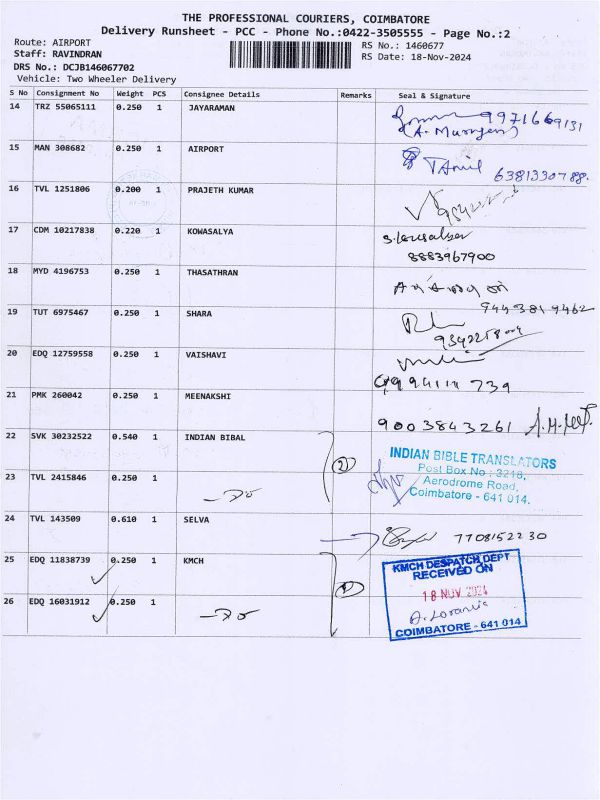 THE PROFESSIONAL COURIERS, COIMBATORE
Delivery Runsheet - PCC - Phone No.:0422-3505555 - Page No.:2
Route: AIRPORT
RS No.: 1460677
Staff: RAVINDRAN
RS Date: 18-Nov-2024
DRS No.: DCJB146067702
Vehicle: Two Wheeler Delivery
S No Consignment No Weight PCS Consignee Details Remarks Seal & Signature
14 TRZ 55065111 0.250 1 JAYARAMAN
9971669131
(A. Murugan)
15 MAN 308682 0.250 1 AIRPORT
Tamil 6381330788.
16 TVL 1251806 0.200 1 PRAJETH KUMAR
17 CDM 10217838 0.220 1 KOWASALYA
8883967900
18 MYD 4196753 0.250 1 THASATHRAN
9443819462
19 TUT 6975467 0.250 1 SHARA
20 EDQ 12759558 0.250 1 VAISHAVI
21 PMK 260042 0.250 1 MEENAKSHI
9003843261
22 SVK 30232522 0.540 1 INDIAN BIBAL
2
INDIAN BIBLE TRANSLATORS
Post Box No : 3218,
Aerodrome Road,
Coimbatore - 641 014.
23 TVL 2415846 0.250 1
24 TVL 143509 0.610 1 SELVA
7708152230
25 EDQ 11838739 0.250 1 KMCH
KMCH DESPATCH DEPT
RECEIVED ON
18 NOV 2024
COIMBATORE - 641 014
26 EDQ 16031912 0.250 1